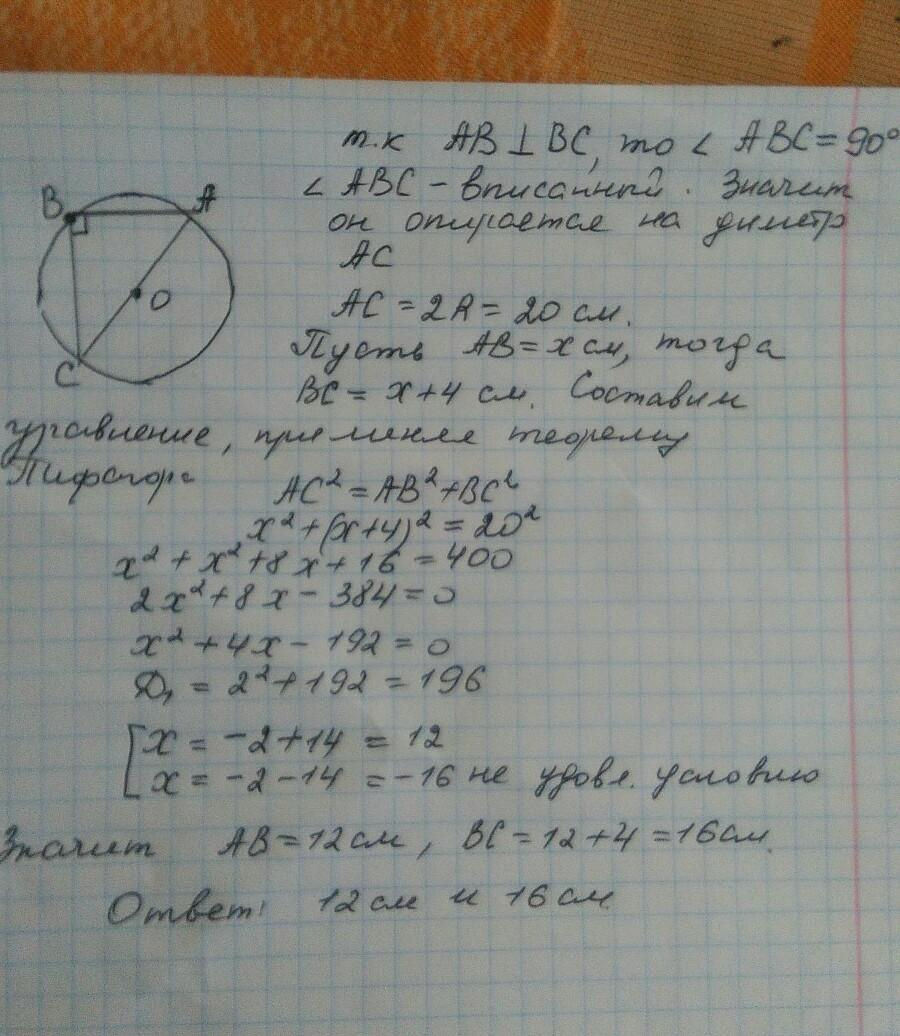 т.к AB ⊥ BC, то ∠ ABC = 90°
∠ ABC – вписанный. Значит
он опирается на диметр
AC
AC = 2R = 20 см.
Пусть AB = x см, тогда
BC = x+4 см. Составим
уравнение, применяя теорему
Пифагора
AC² = AB² + BC²
x² + (x+4)² = 20²
x² + x² + 8x + 16 = 400
2x² + 8x – 384 = 0
x² + 4x – 192 = 0
D₁ = 2² + 192 = 196
[x = –2+14 = 12
x = –2–14 = –16 не удовл. условию
Значит AB = 12 см, BC = 12+4 = 16 см.
Ответ: 12 см и 16 см
B A
O
C